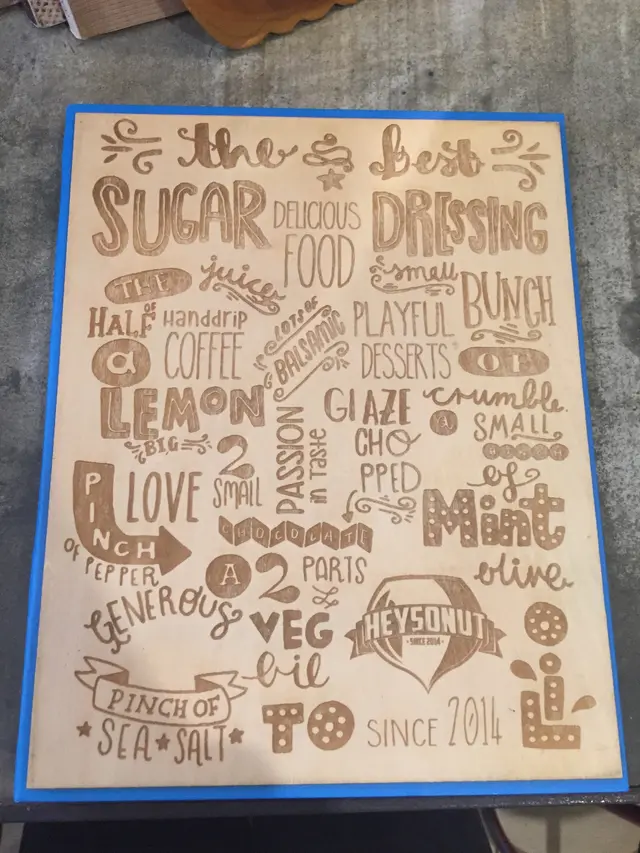 the best
SUGAR DELICIOUS FOOD DRESSING
THE juice OF
small BUNCH OF
HALF a LEMON
Handdrip COFFEE
LOTS OF BALSAMIC
PLAYFUL DESSERTS
GlAZE
crumble
A SMALL
BUNCH
of
Mint
BIG
LOVE
2 SMALL
PASSION in Taste
CHO
PPED
PINCH
OF PEPPER
CHOCOLATE
A
2 PARTS
olive
oil
GENEROUS
VEG
oil
HEYSONUT
SINCE 2014
PINCH OF
SEA SALT
TO
SINCE 2014